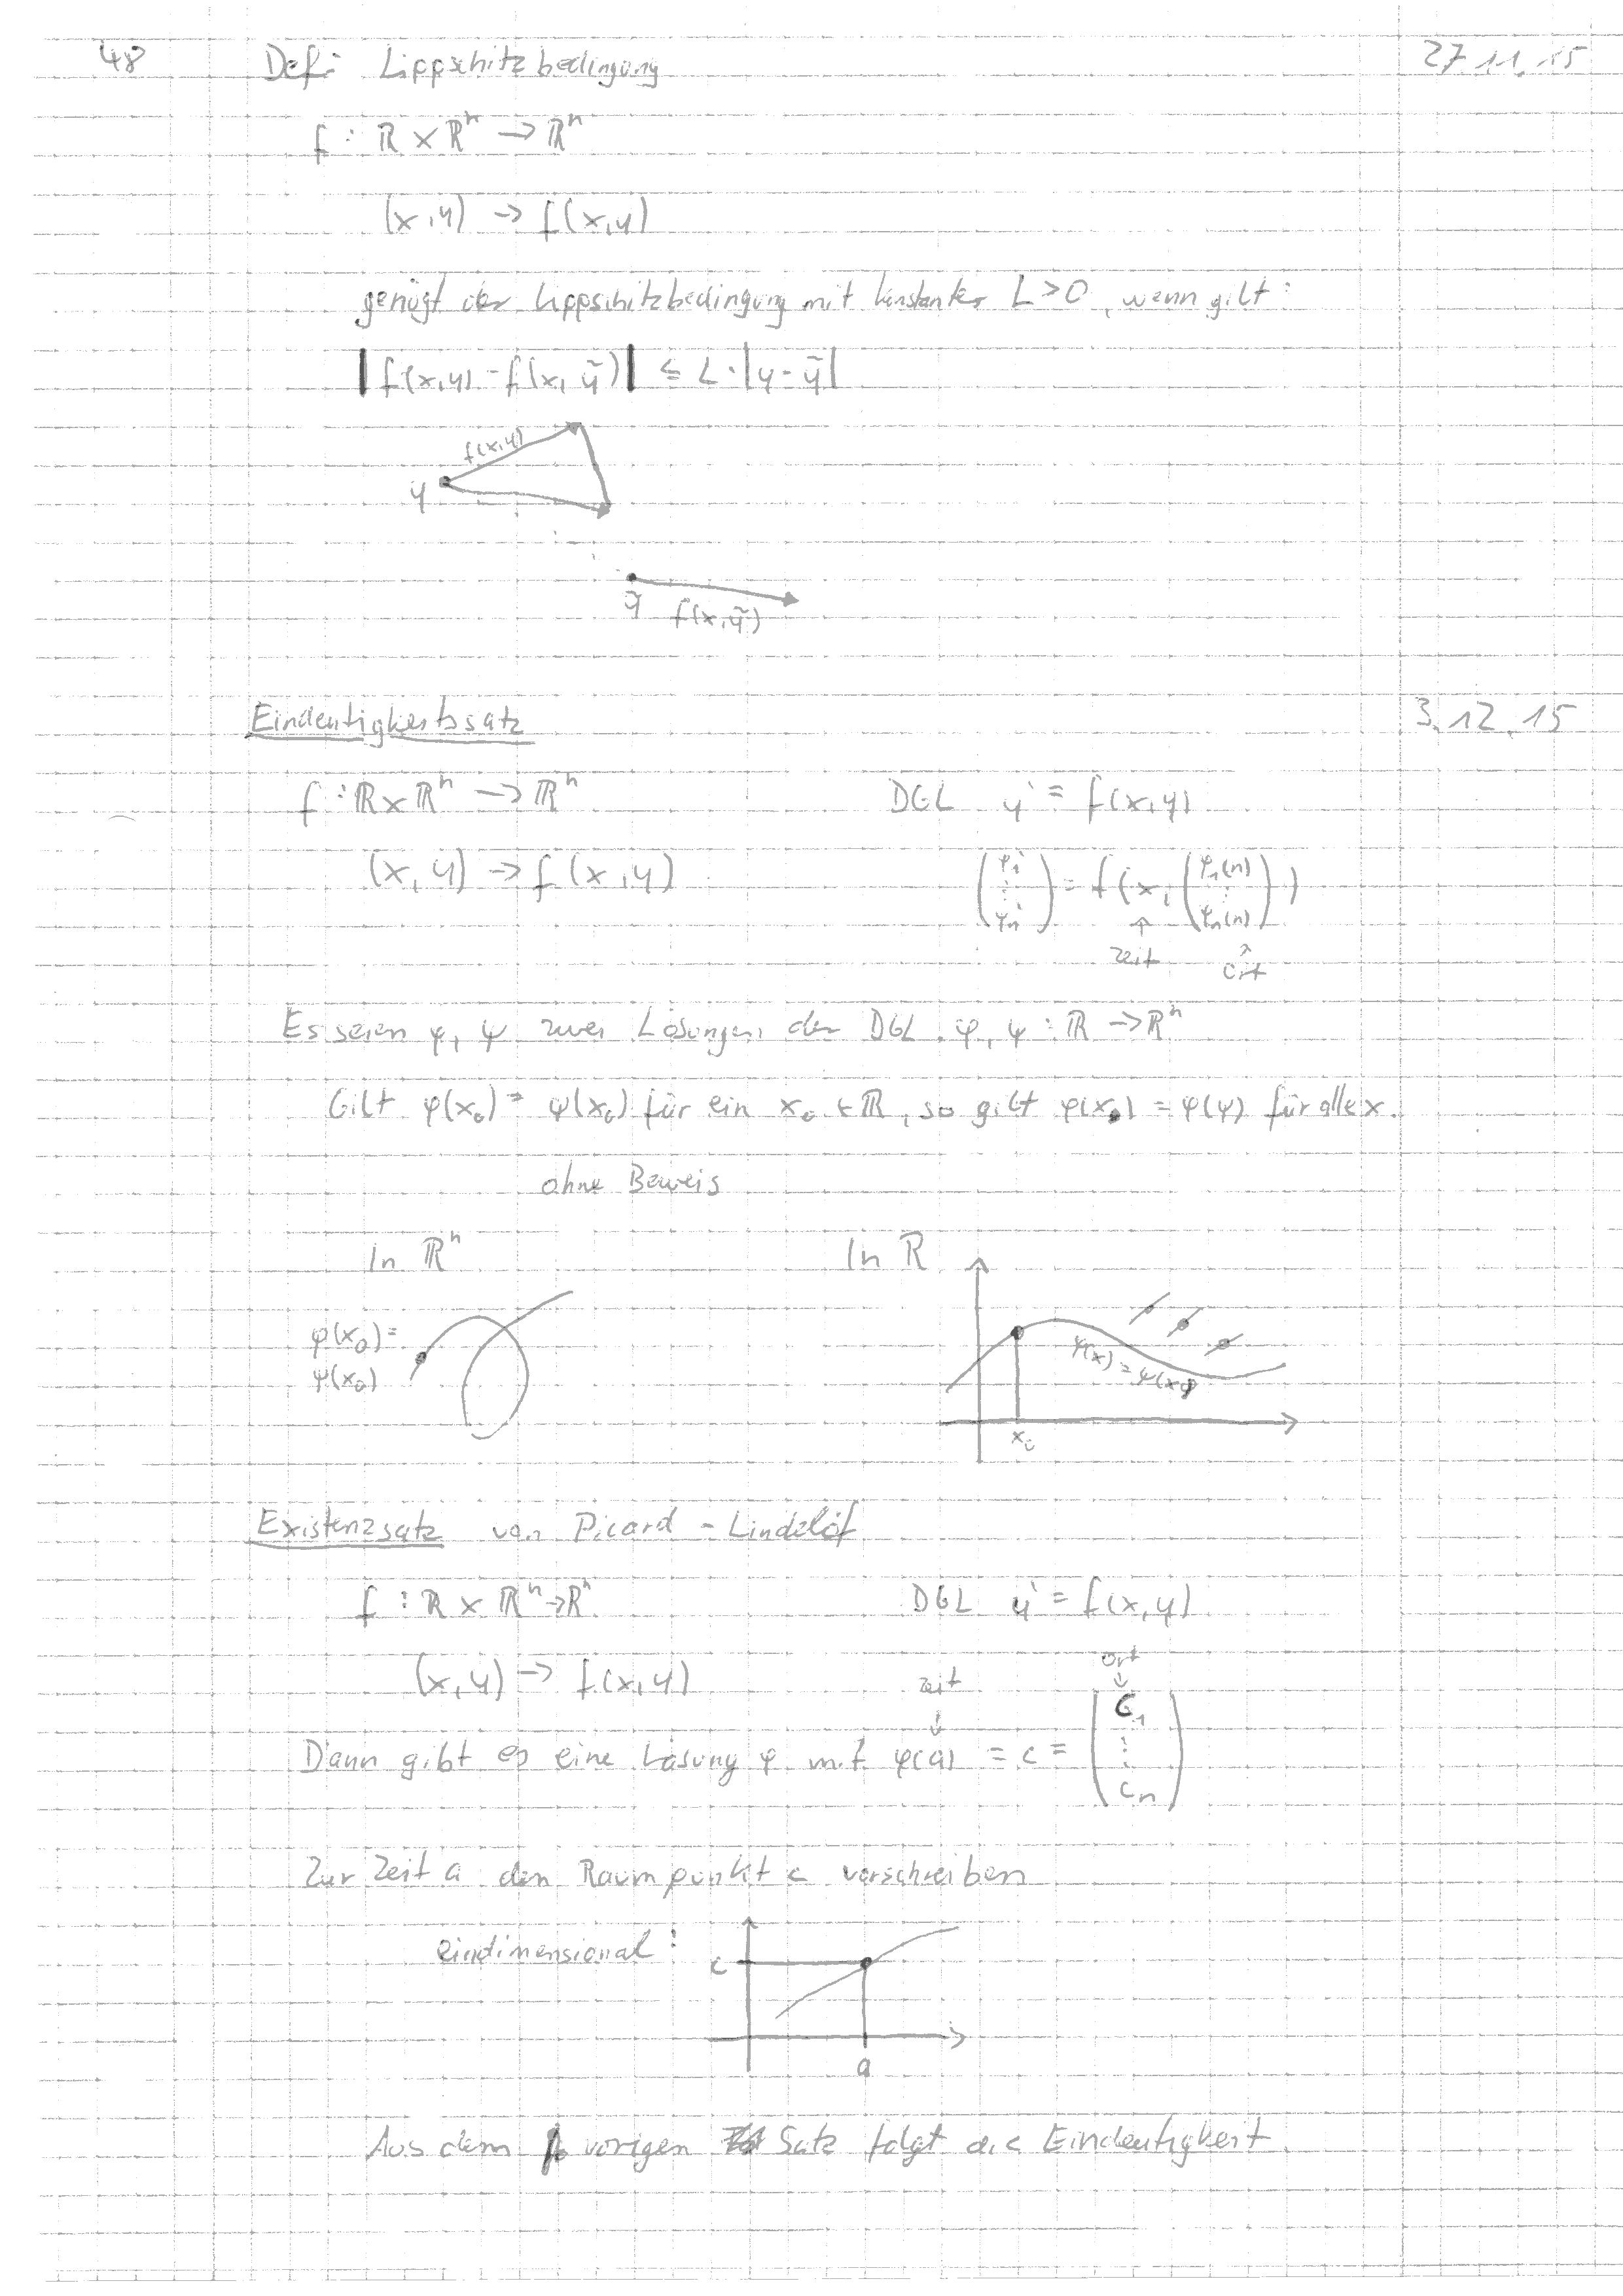 48 Def: Lippschitzbedingung 27.11.15
f : ℝ × ℝⁿ → ℝⁿ
(x,y) → f(x,y)
genügt der Lippschitzbedingung mit Konstanter L>0, wenn gilt:
|f(x,y) - f(x,ỹ)| ≤ L·|y-ỹ|
f(x,y)
y
ỹ f(x,ỹ)
Eindeutigkeitssatz 3.12.15
f : ℝ × ℝⁿ → ℝⁿ DGL y' = f(x,y)
(x,y) → f(x,y) (φ₁' ⋮ φₙ') = f(x, (φ₁(n) ⋮ φₙ(n)))
↑ ↑
Zeit Ort
Es seien φ, ψ zwei Lösungen der DGL φ, ψ : ℝ → ℝⁿ
Gilt φ(x₀) = ψ(x₀) für ein x₀ ∈ ℝ, so gilt φ(x) = φ(ψ) für alle x.
ohne Beweis
In ℝⁿ In ℝ
φ(x₀) =
ψ(x₀)
φ(x) = ψ(x)
x₀
Existenzsatz von Picard - Lindelöf
f : ℝ × ℝⁿ → ℝⁿ DGL y' = f(x,y)
(x,y) → f(x,y) Zeit Ort
↓ ↓
Dann gibt es eine Lösung φ mit φ(a) = c = (c₁ ⋮ cₙ)
Zur Zeit a den Raumpunkt c vorschreiben
eindimensional: c
a
Aus dem vorigen Satz folgt die Eindeutigkeit